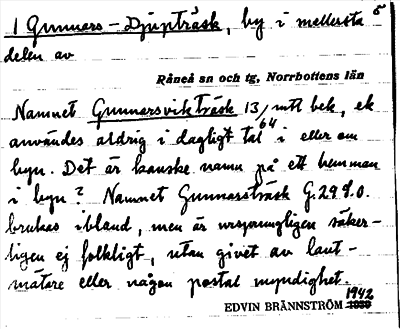 1 Gunnars-Djupträsk, by i mellersta 5
delen av
Råneå sn och tg, Norrbottens län
Namnet Gunnarsvikträsk 13/ mtl bek, ek
64
användes aldrig i dagligt tal i eller om
byn. Det är kanske namn på ett hemman
i byn? Namnet Gunnarsträsk G.29 f.0.
brukas ibland, men är ursprungligen säker-
ligen ej folkligt, utan givet av lant-
mätare eller någon postal myndighet.
1942
EDVIN BRÄNNSTRÖM 1939